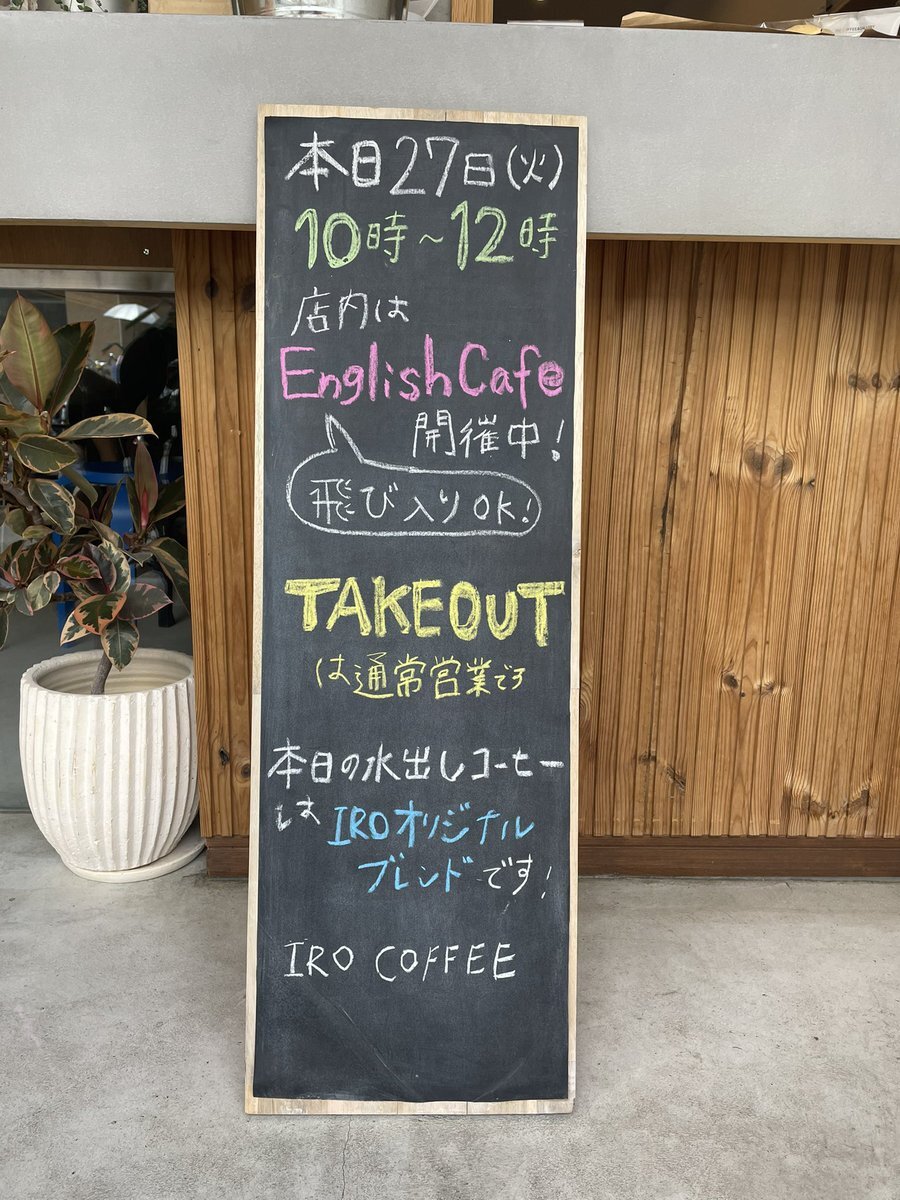 本日27日(火)
10時~12時
店内は
English Cafe
開催中!
飛び入りOK!
TAKEOUT
は通常営業です
本日の水出しコーヒー
は IROオリジナル
ブレンドです!
IRO COFFEE